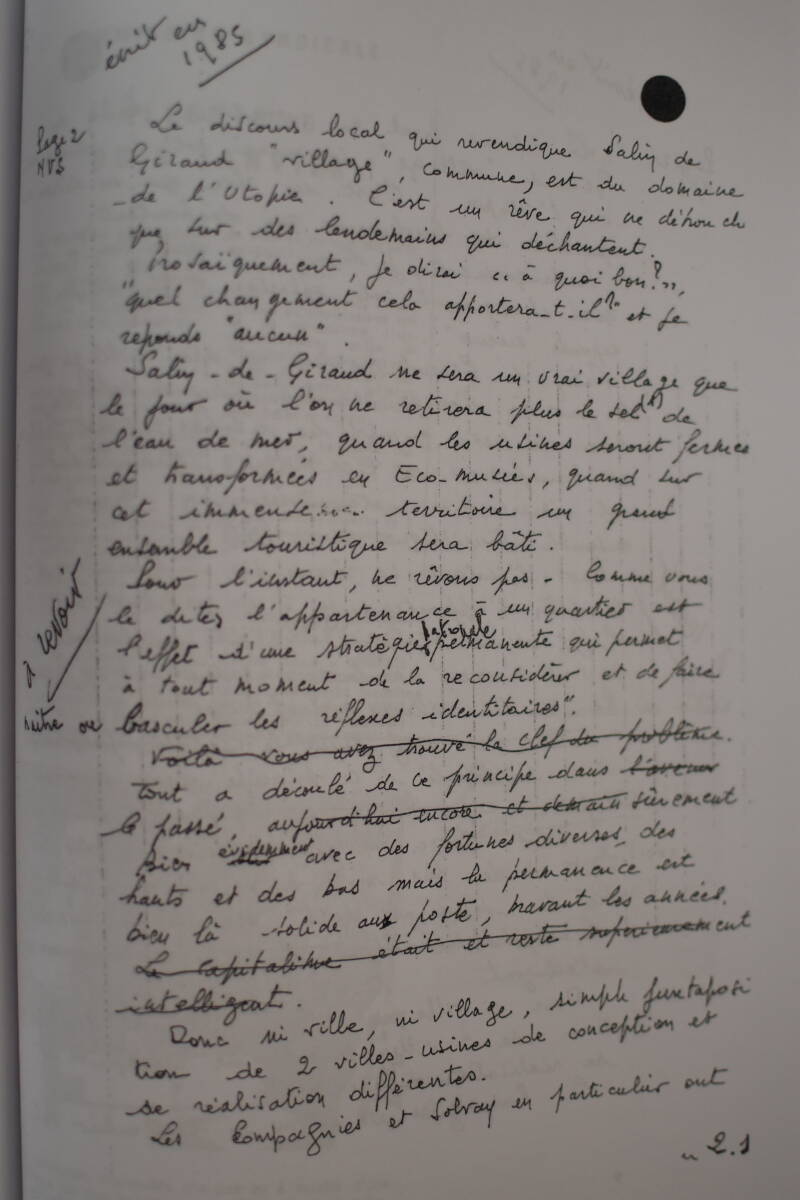 écrit en
1985
Page 2
MVS
Le discours local qui revendique Salin de
Giraud "village", commune, est du domaine
de l'Utopie. C'est un rêve qui ne débouch
que sur des lendemains qui déchantent.
Prosaïquement, je dirai " à quoi bon?",
"quel changement cela apportera-t-il?" et je
réponds "aucun".
Salin-de-Giraud ne sera un vrai village que
le jour où l'on ne retirera plus le sel de
l'eau de mer, quand les usines seront fermées
et transformées en Eco-musées, quand sur
cet immense territoire un grand
ensemble touristique sera bâti.
Pour l'instant, ne rêvons pas. Comme vous
le dites l'appartenance à un quartier est
l'effet d'une stratégie patronale permanente qui permet
à tout moment de la reconsidérer et de faire
à revoir
ou basculer les réflexes identitaires".
Voilà vous avez trouvé la clef du problème.
Tout a découlé de ce principe dans l'avenir
le passé, aujourd'hui encore et demain sûrement
bien évidemment avec des fortunes diverses, des
hauts et des bas mais la permanence est
bien là solide au poste, bravant les années.
Le capitalisme était et reste supérieurement
intelligent.
Donc ni ville, ni village, simple juxtaposi
tion de 2 villes-usines de conception et
de réalisation différentes.
Les Compagnies et Solvay en particulier ont
2.1